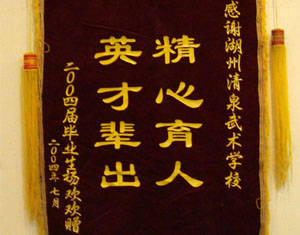 感谢湖州清泉武术学校
精心育人
英才辈出
二〇〇四届毕业生杨欢欢赠
二〇〇四年七月